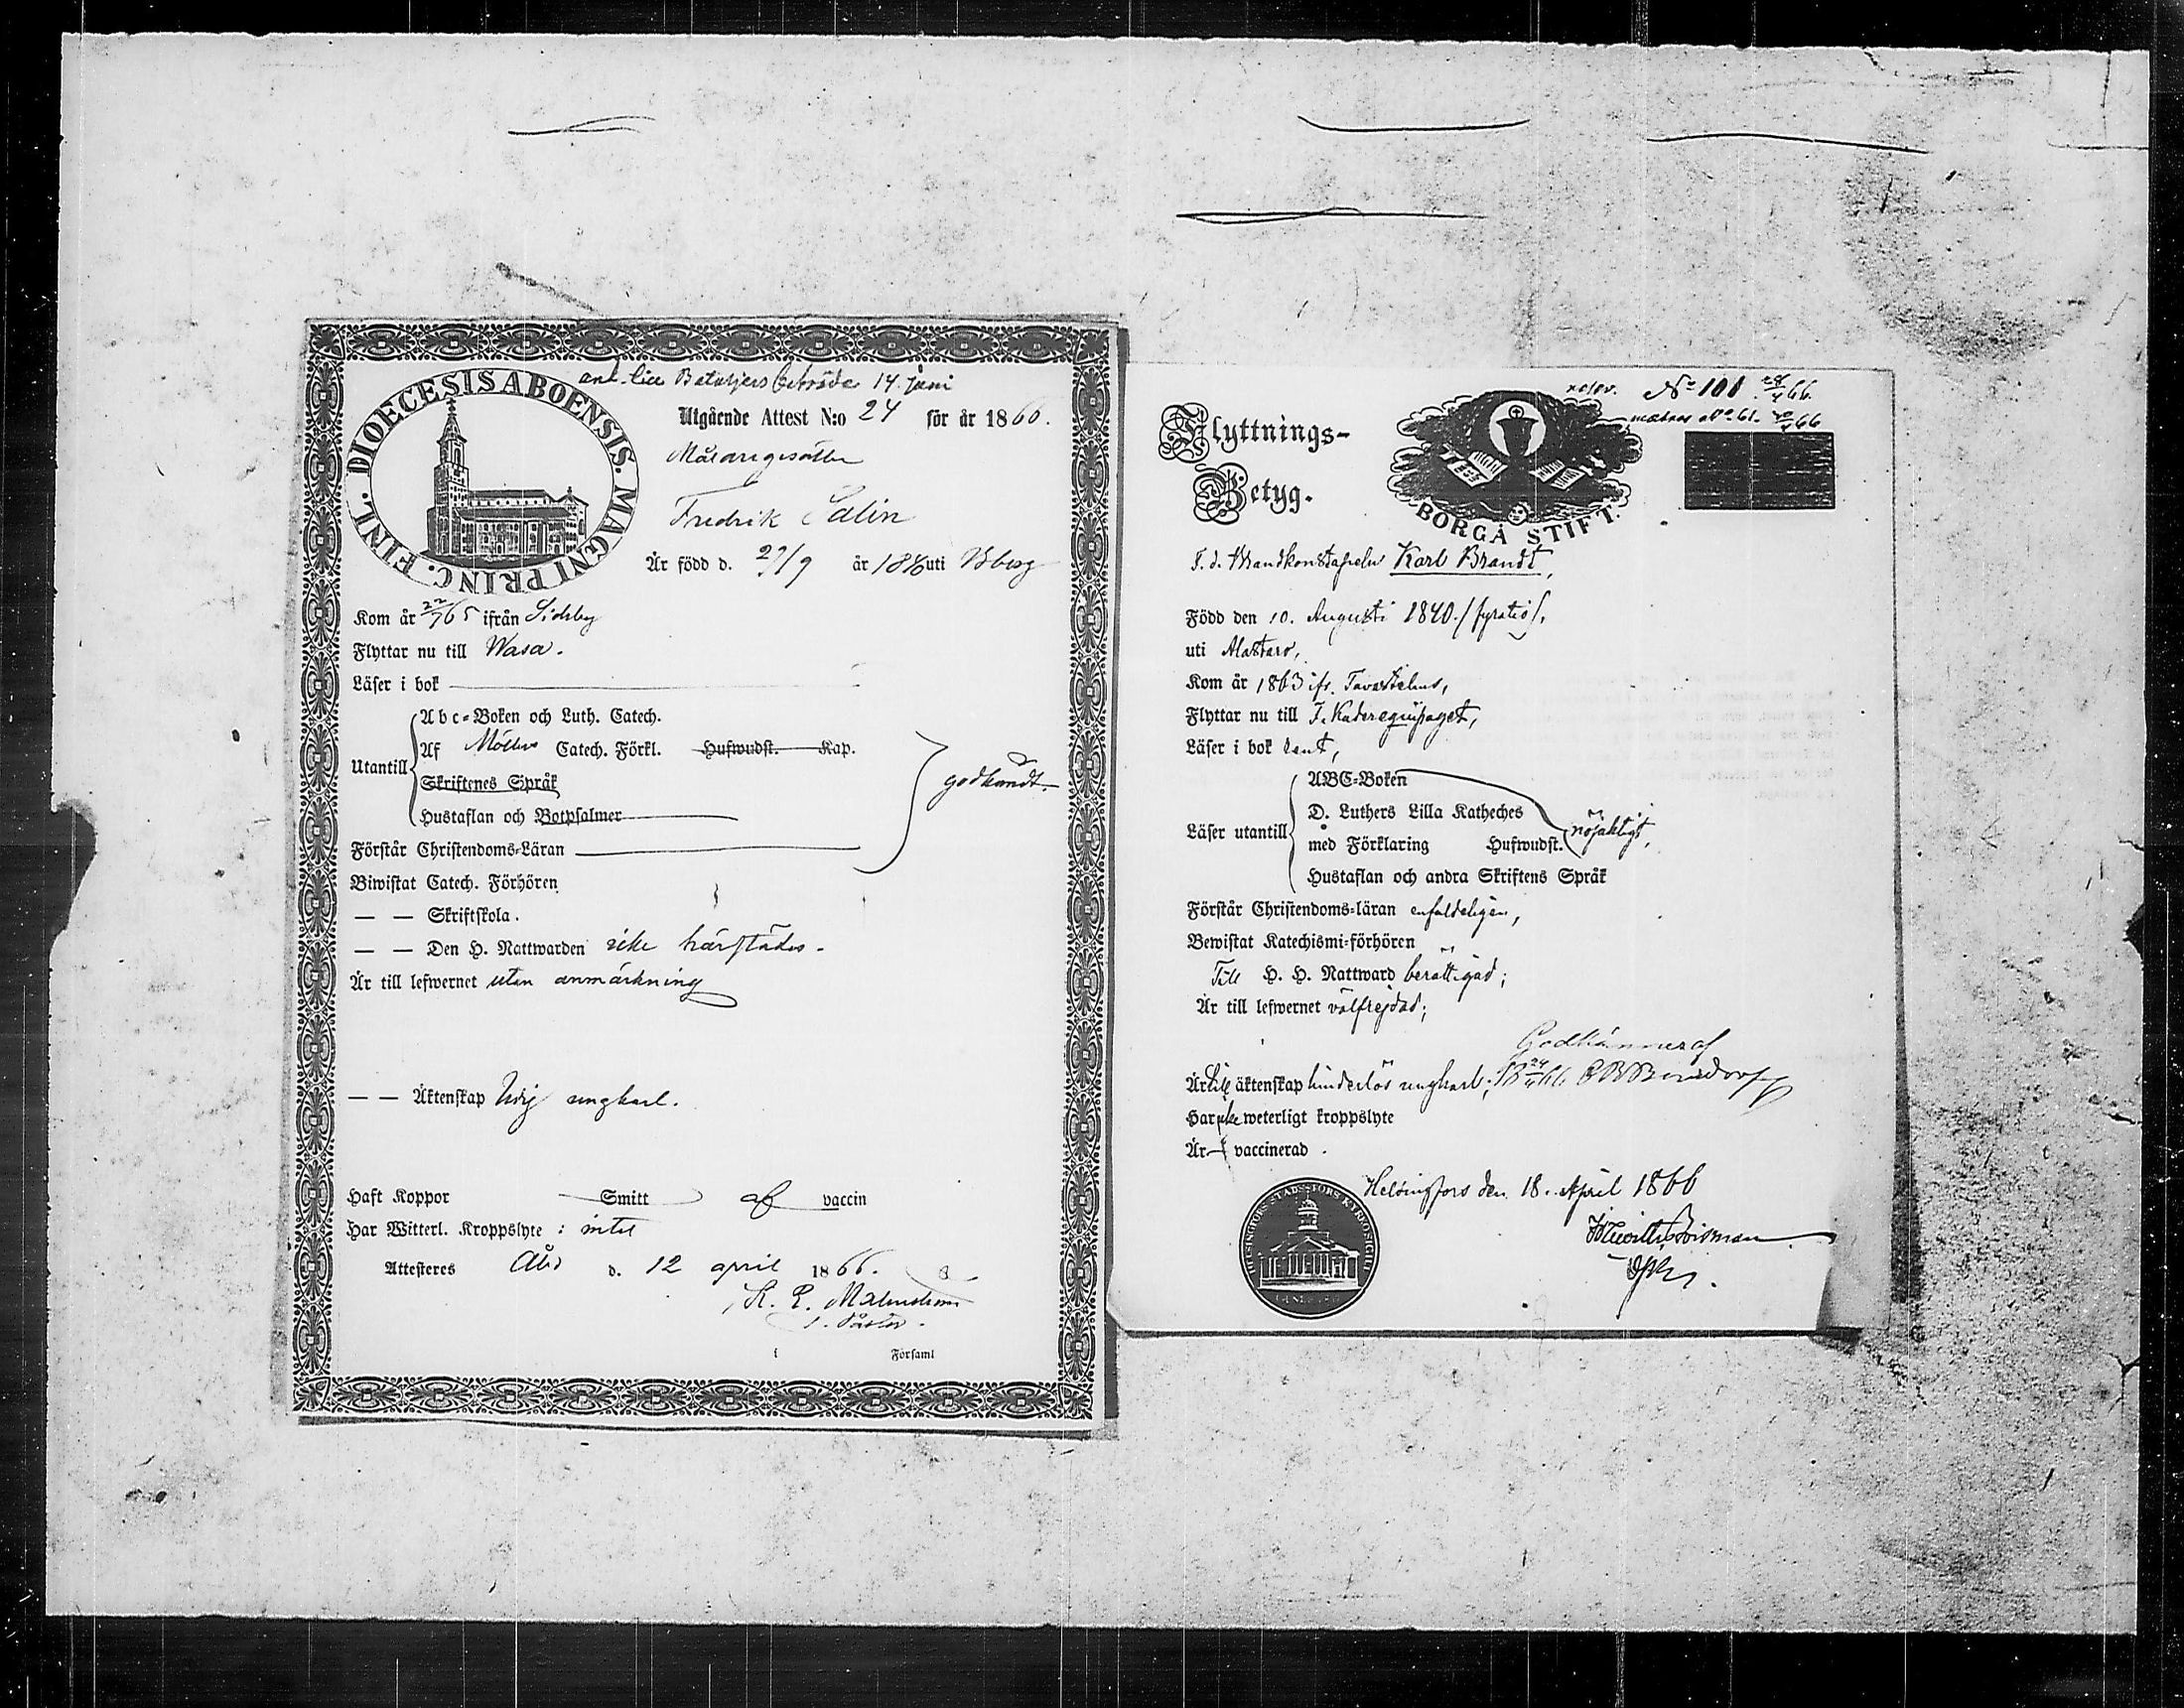 DIOECESIS ABOENSIS. MAGNI PRINC. FINL.
Bataljers 14 juni
Utgående Attest N:o 24 för år 1860.
Fredrik Salin
Är född d. 27/9 år 18 uti
Kom år 22/7 65 ifrån Sideby
Flyttar nu till Wasa.
Läser i bok
Utantill
Abc-Boken och Luth. Catech.
Af Möllers Catech. Förkl. Hufwudst. Kap.
Skriftenes Språk
Hustaflan och Botpsalmer
godkändt.
Förstår Christendoms-Läran
Biwistat Catech. Förhören
— — Skriftskola.
— — Den H. Nattwarden icke härstädes.
Är till lefwernet utan anmärkning
— — Äktenskap ledig ungkarl.
Haft Koppor Smitt af vaccin
Har Witterl. Kroppslyte : intet
Attesteres Åbo d. 12 april 1866.
K. R. Malmström
i Församl
Flyttnings-
Betyg.
BORGÅ STIFT.
No 101 28/4 66.
No 61. 66
F. d. Brandkonstapeln Karl Brandt,
Född den 10. Augusti 1840. /fyratio/,
uti Alastaro,
Kom år 1863 ifr. Tavastehus,
Flyttar nu till F. Kaderequipaget,
Läser i bok rent,
Läser utantill
ABC-Boken
D. Luthers Lilla Katheches
med Förklaring Hufwudst.
Hustaflan och andra Skriftens Språk
nöjaktigt,
Förstår Christendoms-läran enfaldeligen,
Bewistat Katechismi-förhören
Till H. H. Nattward berättigad;
Är till lefwernet välfrejdad;
Godkännes af
Är till äktenskap hinderlös ungkarl;
Har icke weterligt kroppslyte
Är vaccinerad
Helsingfors den 18. April 1866
HELSINGFORS STADSFÖRS. KYRKOSIGILL